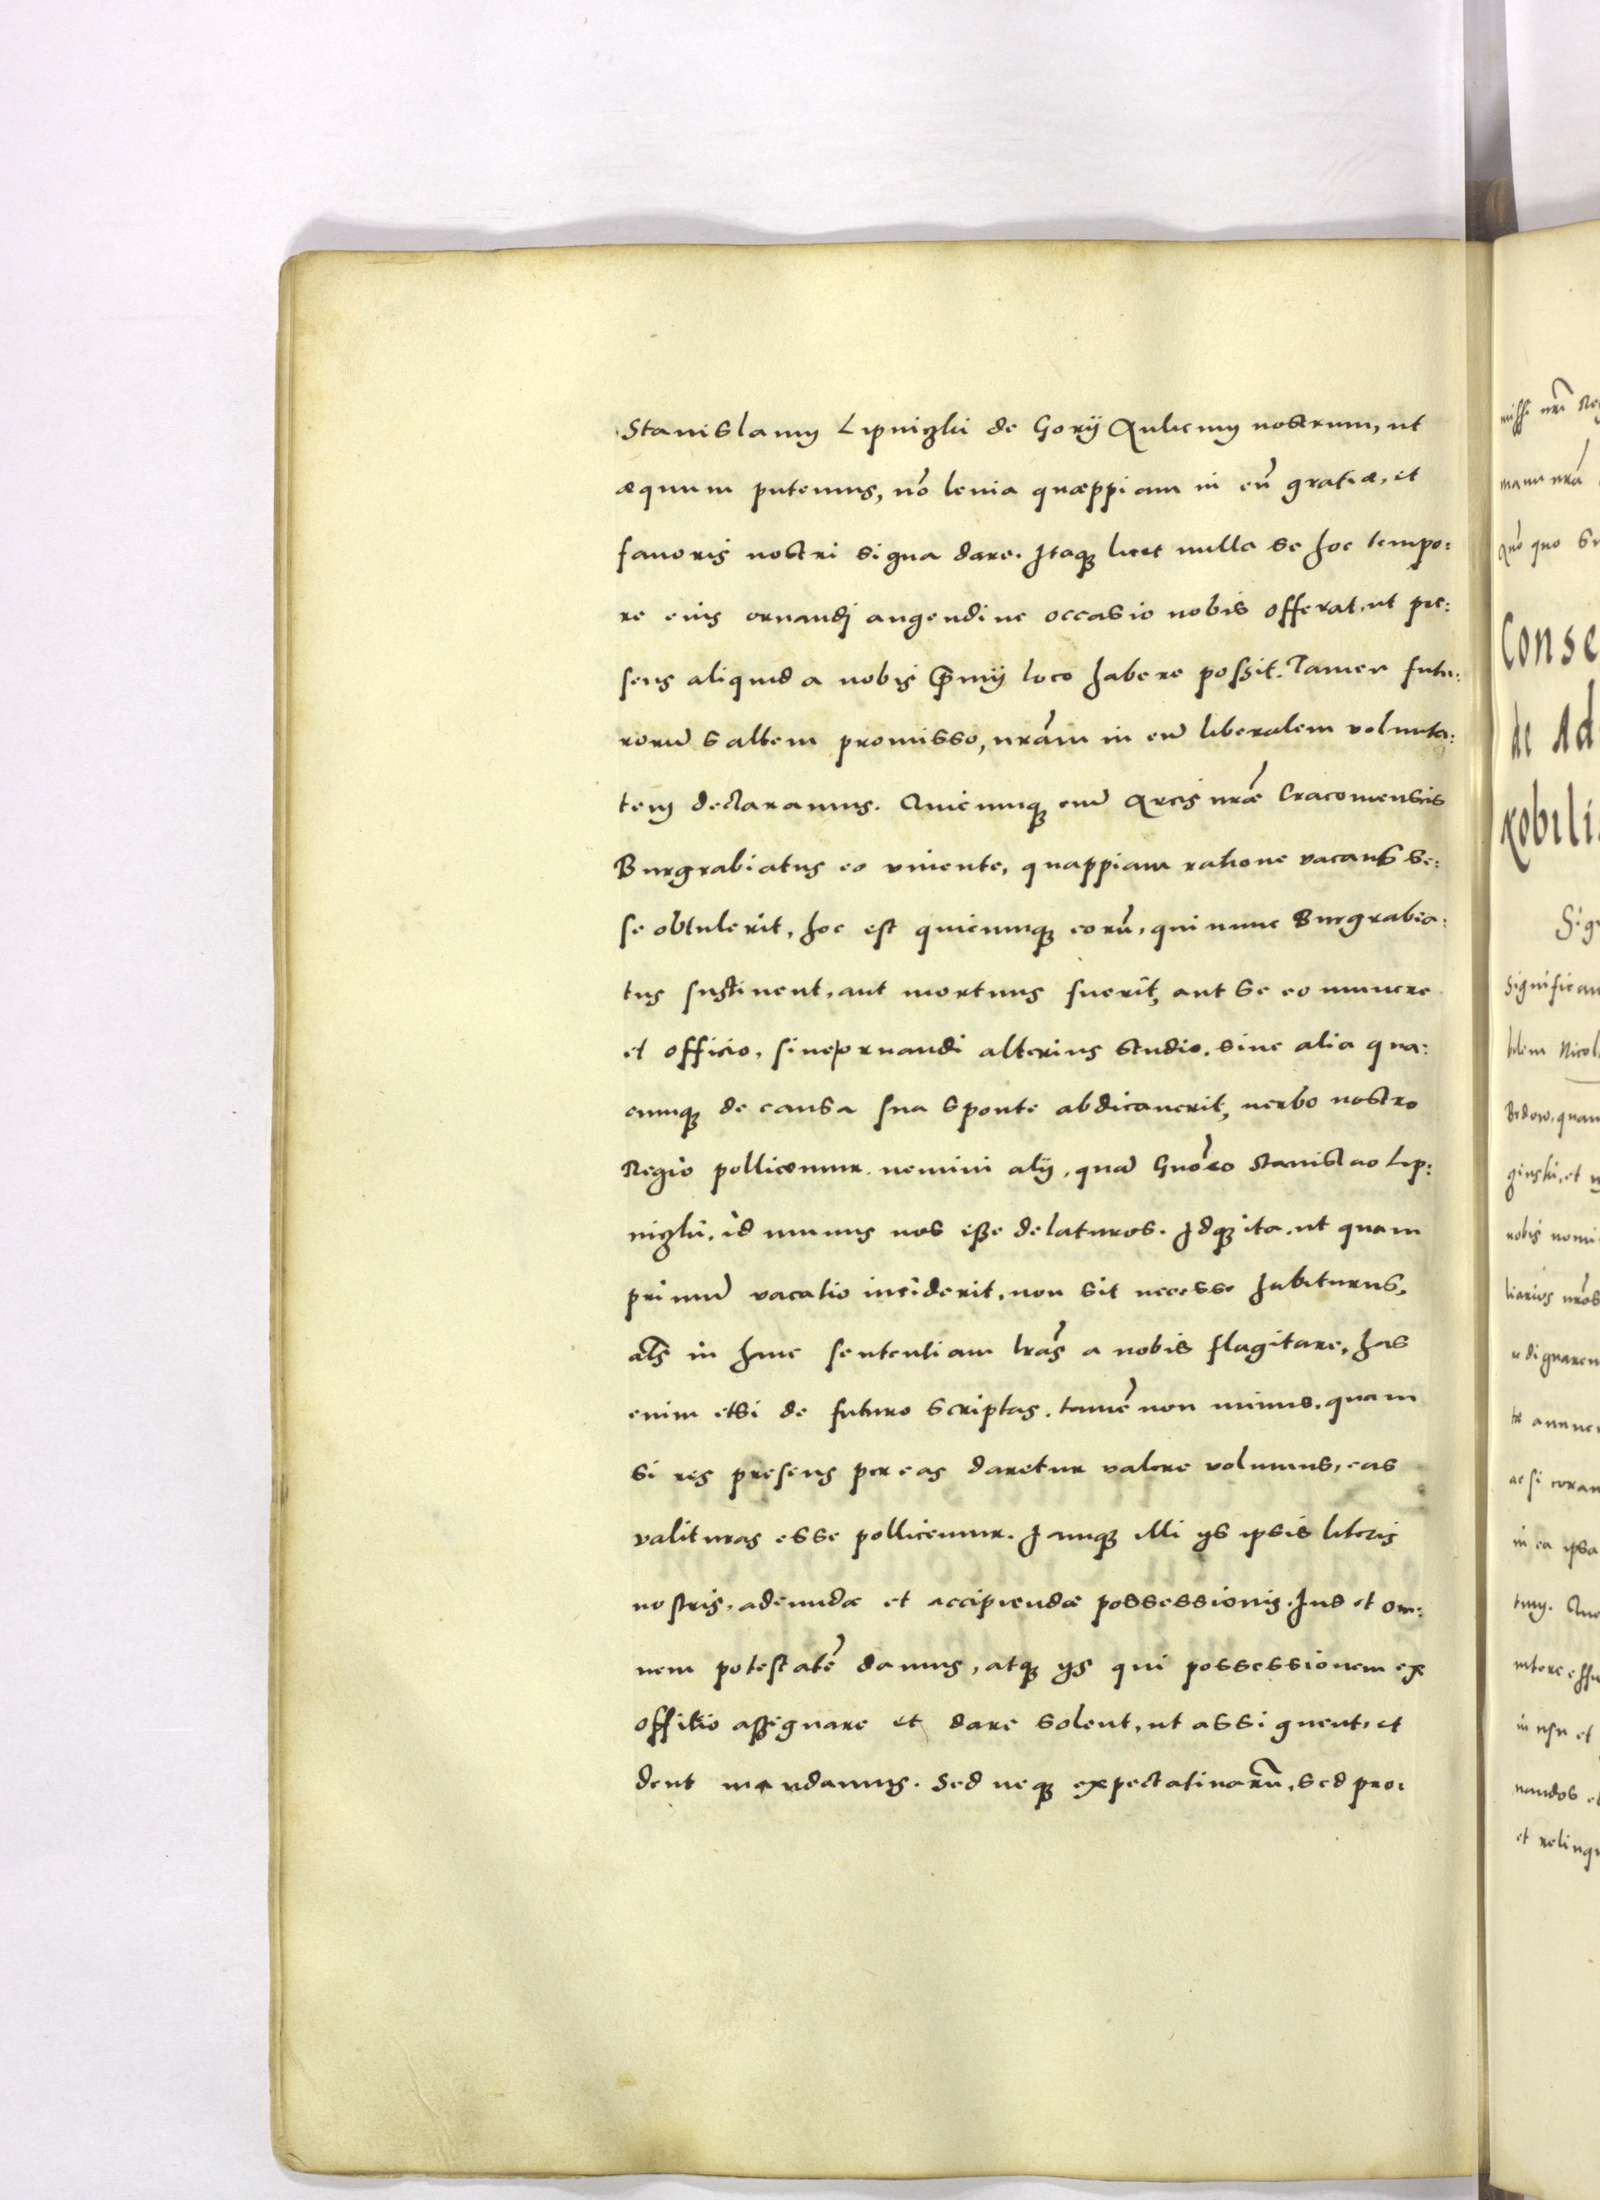 Stanislaum Lipnizki de Gory Aulicum nostrum, ut
æquum putemus, nõ levia quæppiam in eũ gratiæ, et
favoris nostri signa dare. Itaqꝫ licet nulla se hoc tempo:
re eius ornandi augendive occasio nobis offerat, ut pre:
sens aliquid a nobis p̃mij loco habere possit. Tamen futu:
rorũ saltem promisso, nrãm in eũ liberalem volunta:
tem declaramus. Quicunqꝫ enĩ Arcis nrãe Cracoviensis
Burgrabiatus eo vivente, quappiam ratione vacans se:
se obtulerit, hoc est quicunqꝫ eorũ, qui nunc Burgrabia:
tus sustinent, aut mortuus fuerit, aut se eo munere
et officio, sive ornandi alterius studio, sive alia qua:
cunqꝫ de causa sua sponte abdicaverit, verbo nostro
Regio pollicemur, nemini alij, quã Gnõso Stanislao Lip:
nizki, id munus nos esse delaturos. Idqꝫ ita, ut quam
primũ vacatio inciderit, non sit necesse habiturus,
als̃ in hanc sententiam lrãs a nobis flagitare, has
enim etsi de futuro scriptas, tamẽ non minus, quam
si res presens per eas daretur valere volumus, eas
valituras esse pollicemur. Iamqꝫ illi ijs ipsis literis
nostris, adeundæ et accipiendæ possessionis. Ius et om:
nem potestatẽ damus, atqꝫ ijs qui possessionem ex
offitio assignare et dare solent, ut assignent, et
dent mandamus. Sed neqꝫ expectativarũ, sed pro:
Conse
de Ad
Nobili
Significam
bilem Nicol
nobis nomi
liarios nrõs
in ea ipsa
in usu et
nandos et
et relinqu